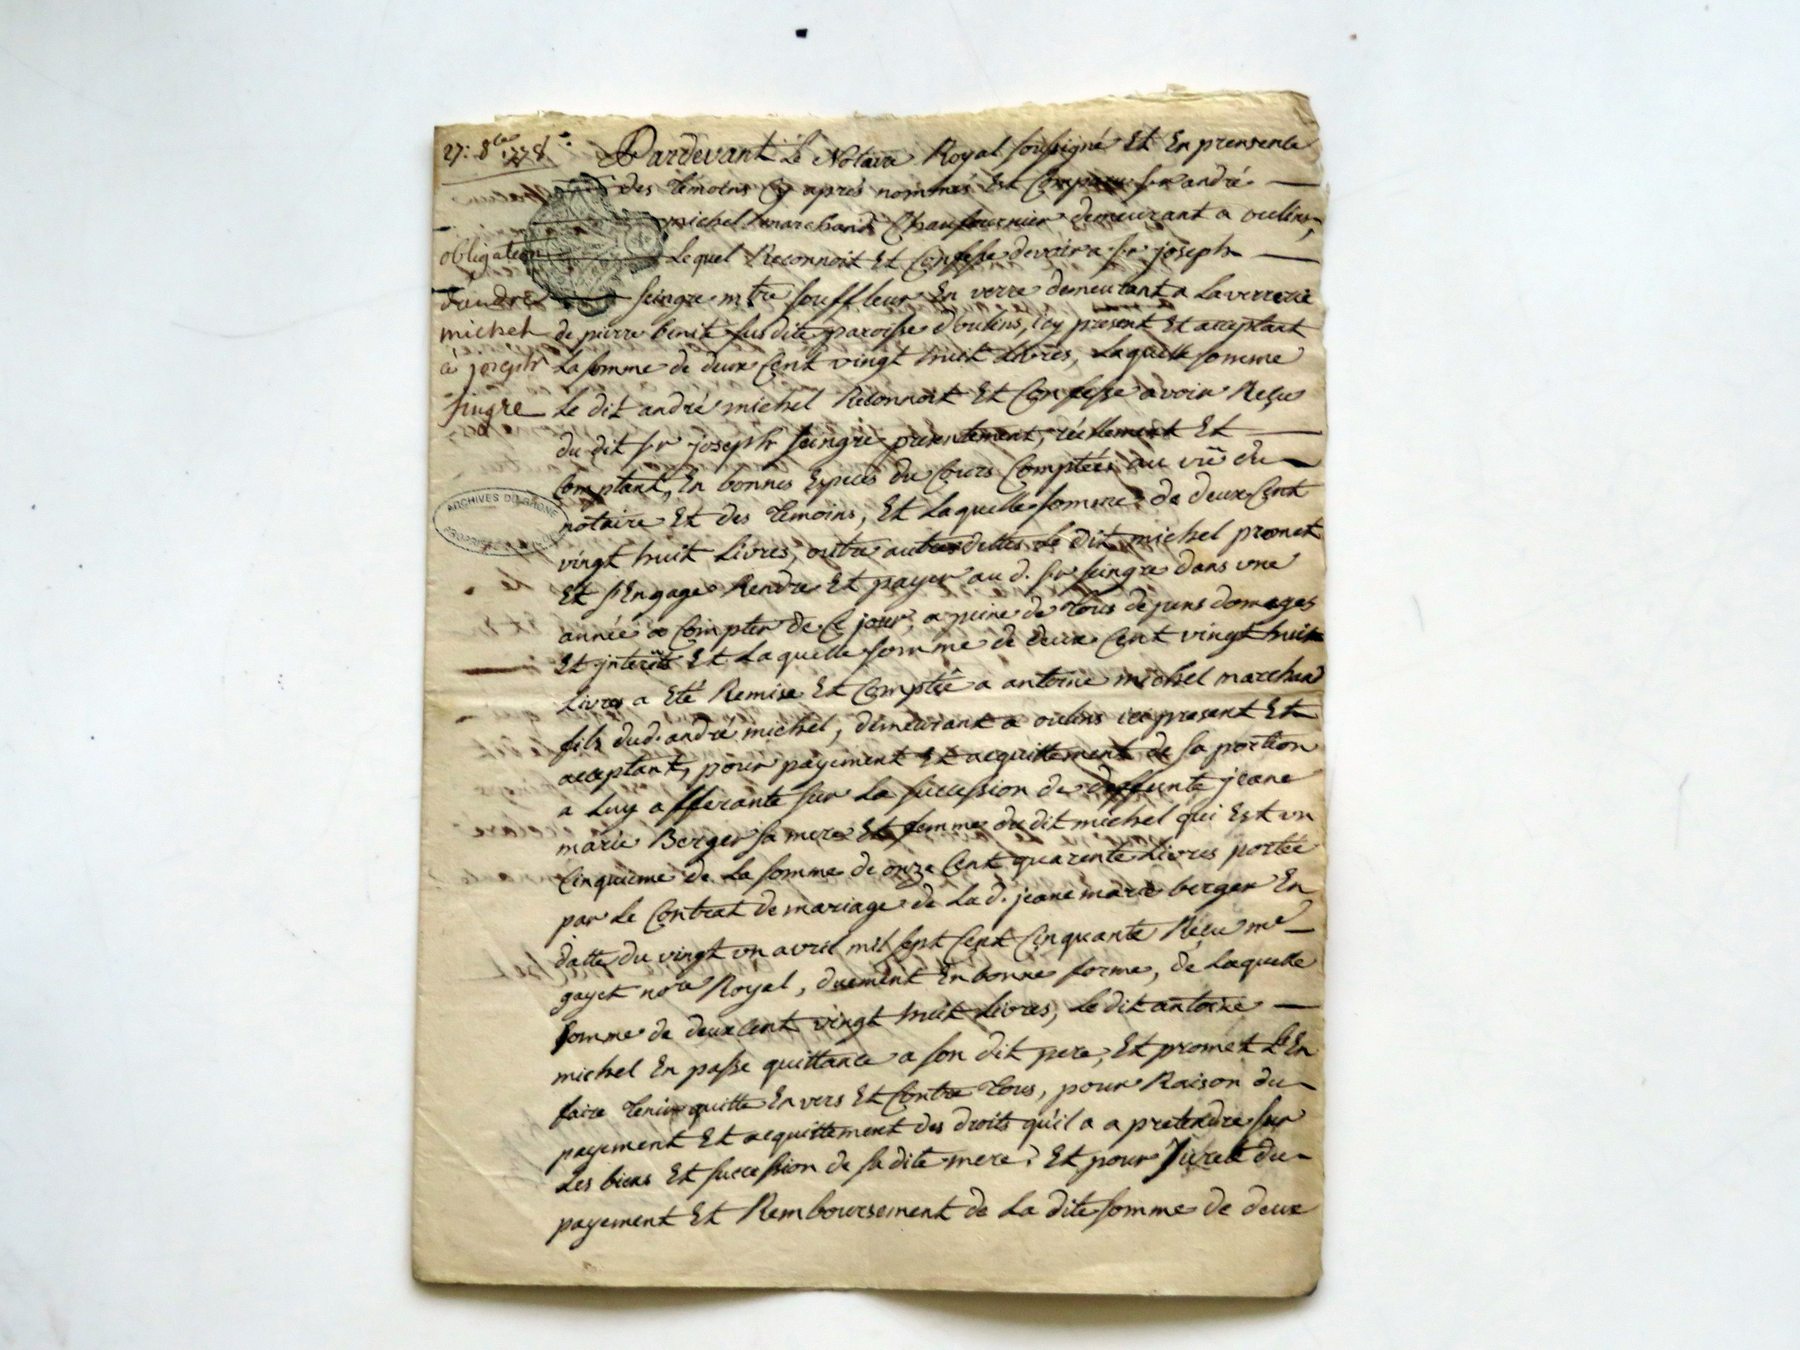 27: 8bre 1778
obligation
d'andré
michel
à joseph
singre
ARCHIVES DU RHONE
Pardevant Le Notaire Royal soussigné Et En prensente
des temoins Cy après nommés Est Comparu sr andré
michel marchand Chaufournier demeurant a oulins,
Lequel Reconnoit Et Confesse devoir a sr joseph
seingre mtre souffleur En verre demeurant a La verrerie
de pierre benite susdite paroisse d'oulins, icy present Et acceptant
La somme de deux Cent vingt huit Livres, Laquelle somme
Le dit andré michel Reconnoit Et Confesse avoir Reçu
du dit sr joseph seingre presentement, réellement Et
Comptant, En bonnes Espèces du Cours Comptées au vû du
notaire Et des temoins, Et Laquelle somme de deux Cent
vingt huit Livres, outre autres dettes Le dit michel promet
Et s'Engage Rendre Et payer au d. sr seingre dans une
année a Compter de Ce jour, a peine de tous depens domages
Et interêt Et Laquelle somme de deux Cent vingt huit
Livres a Eté Remise Et Comptée a antoine michel marchand
fils dud. andré michel, demeurant a oulins ici present Et
acceptant, pour payement Et acquittement de sa portion
a Luy afferante sur La succession de deffunte jeane
marie Berger sa mere Et femme du dit michel qui Est un
Cinquieme de La somme de onze Cent quarente Livres portée
par Le Contrat de mariage de La d. jeane marie berger En
datte du vingt un avril mil sept Cent Cinquante Réçu me
gayet nore Royal, duement En bonne forme, de Laquelle
somme de deux Cent vingt huit Livres, Le dit antoine
michel En passe quittance a son dit pere, Et promet L'En
faire tenir quitte Envers Et Contre tous, pour Raison du
payement Et acquittement des droits qu'il a a pretendre sur
Les biens Et succession de sa dite mere? Et pour sureté du
payement Et Remboursement de La dite somme de deux